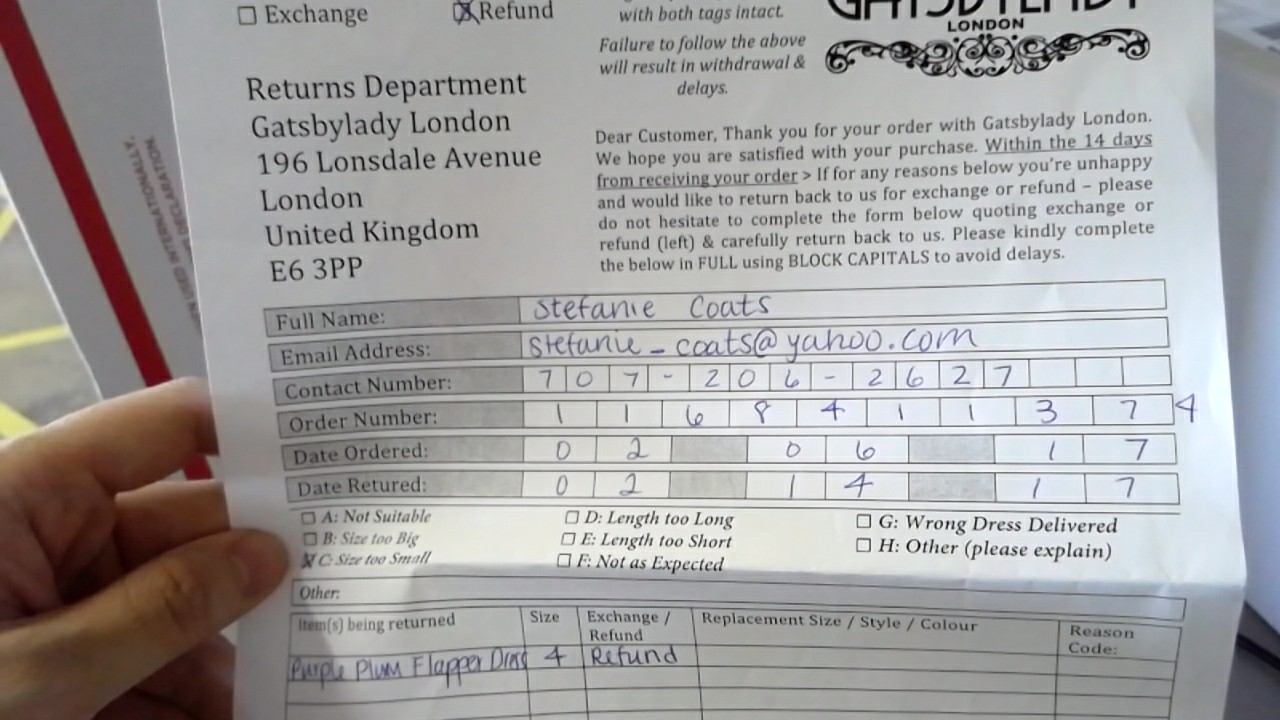 Exchange
Refund
with both tags intact.
Failure to follow the above
will result in withdrawal &
delays.
LONDON
Returns Department
Gatsbylady London
196 Lonsdale Avenue
London
United Kingdom
E6 3PP
Dear Customer, Thank you for your order with Gatsbylady London.
We hope you are satisfied with your purchase. Within the 14 days
from receiving your order > If for any reasons below you're unhappy
and would like to return back to us for exchange or refund – please
do not hesitate to complete the form below quoting exchange or
refund (left) & carefully return back to us. Please kindly complete
the below in FULL using BLOCK CAPITALS to avoid delays.
Full Name: Stefanie Coats
Email Address: stefanie_coats@yahoo.com
Contact Number: 707-206-2627
Order Number: 1168411374
Date Ordered: 02 06 17
Date Retured: 02 14 17
A: Not Suitable
B: Size too Big
C: Size too Small
D: Length too Long
E: Length too Short
F: Not as Expected
G: Wrong Dress Delivered
H: Other (please explain)
Other:
Item(s) being returned Size Exchange / Refund Replacement Size / Style / Colour Reason Code:
Purple Plum Flapper Dress 4 Refund